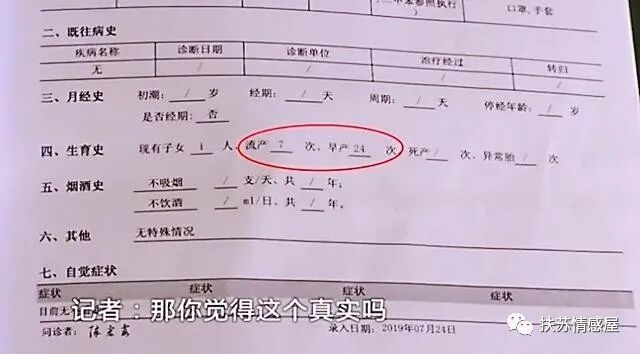 二中未参照执行)
口罩,手套
二、既往病史
疾病名称 诊断日期 诊断单位 治疗经过 转归
无 / / / /
三、月经史 初潮: / 岁 经期: / 天 周期: / 天 停经年龄: / 岁
是否经期: 否
四、生育史 现有子女 1 人、流产 7 次、早产 24 次 死产 / 次、异常胎 / 次
五、烟酒史 不吸烟 / 支/天、共 / 年;
不饮酒 / ml/日、共 / 年;
六、其他 无特殊情况
七、自觉症状
症状 症状 症状 症状
目前无
记者:那你觉得这个真实吗
问诊者: 录入日期: 2019年07月24日
扶苏情感屋